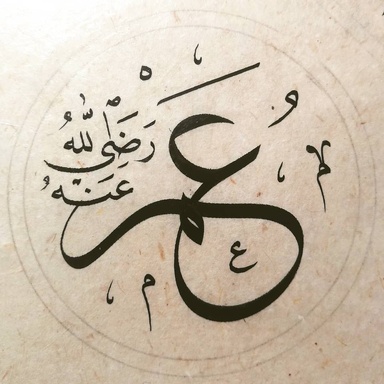 عمر
رَضَى لله
عَنهُ